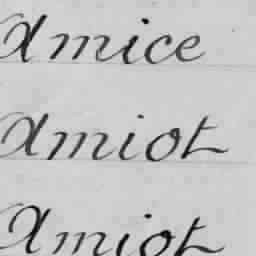 Amice
Amiot
Amiot